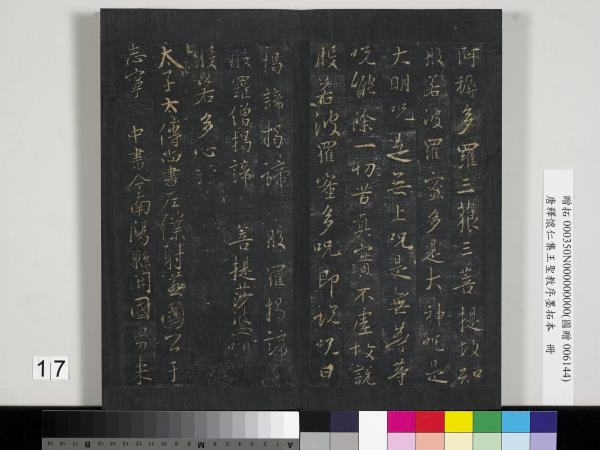 阿耨多羅三藐三菩提故知
般若波羅蜜多是大神呪是
大明呪是無上呪是無等等
呪能除一切苦真實不虛故說
般若波羅蜜多呪即說呪曰
揭諦揭諦 般羅揭諦
般羅僧揭諦 菩提莎婆呵
般若多心
太子太傅尚書左僕射燕國公于
志寧 中書令南陽縣開國男來
贈拓 000350N000000000(國贈 006144)
唐釋懷仁集王聖教序墨拓本 冊
17